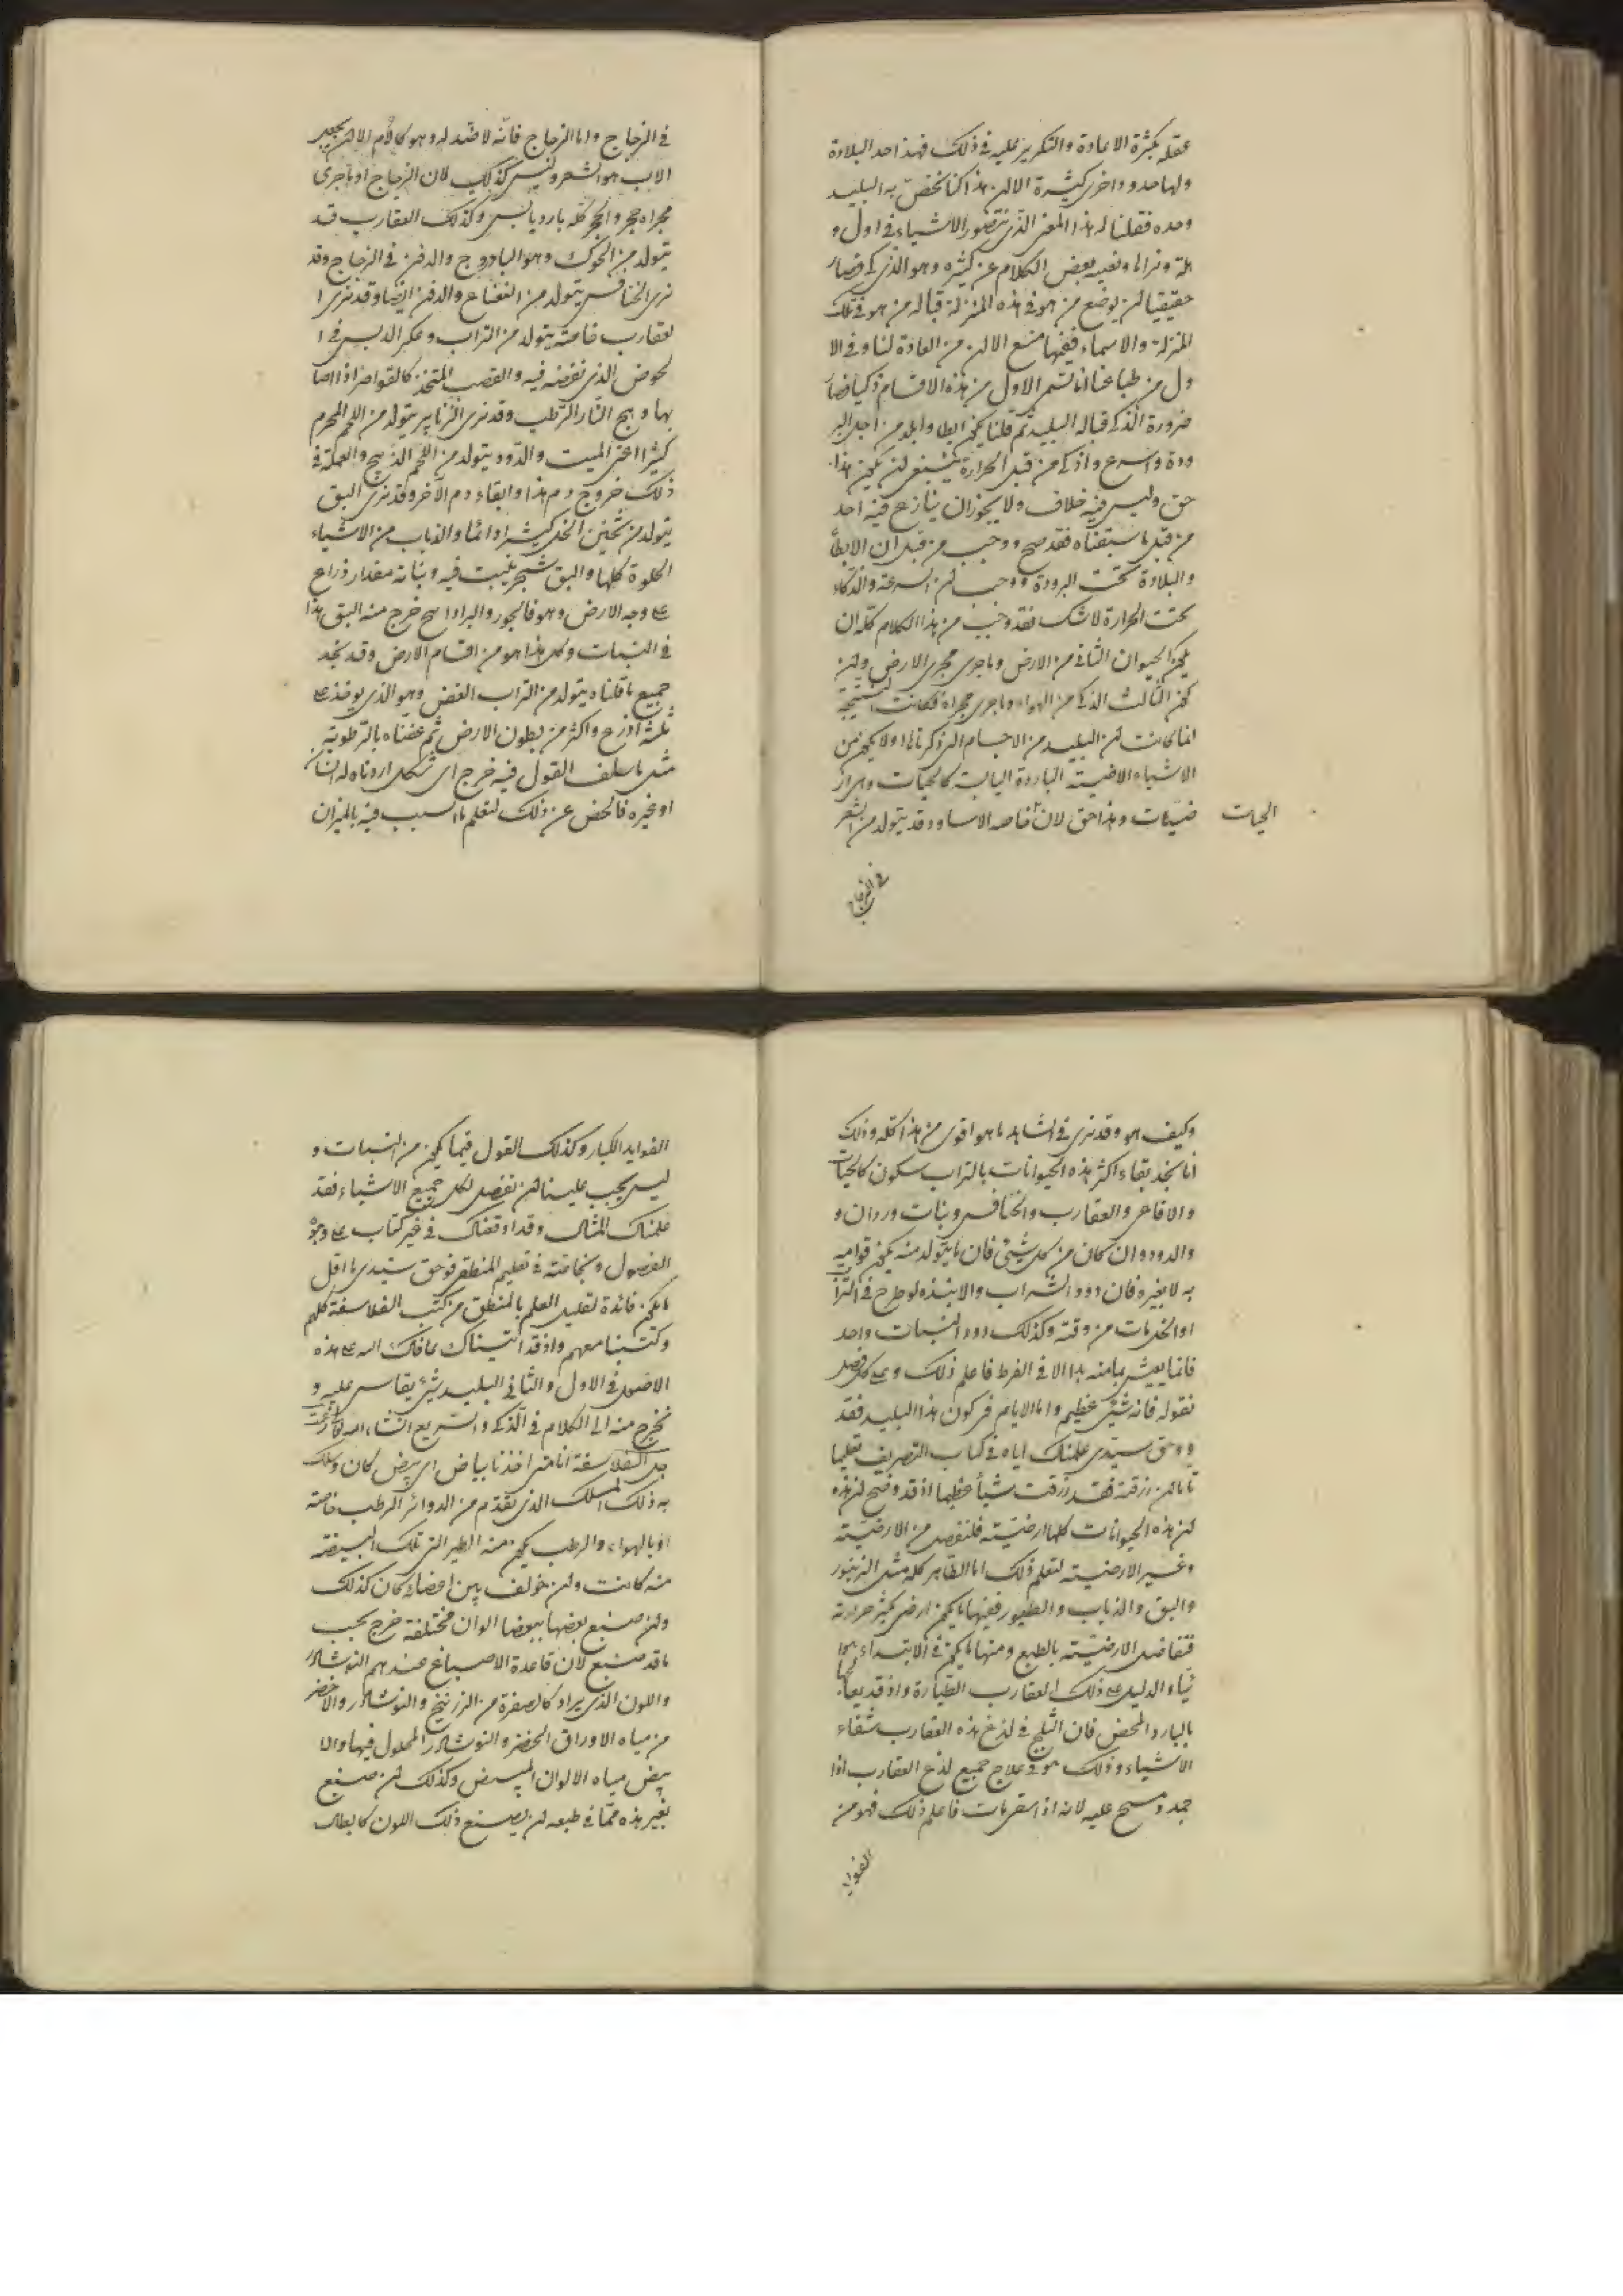 عقله بكثرة الاعادة والتكرير عليه في ذلك فهذا احد البلادة
ولها حدود اخرى كثيرة الا ان هذا كنا نخص به البليد
وحده فقلنا له هذا المعنى الذي يتصور الاشياء في اول و
هلة ونزالها ونعيه بعض الكلام عن كثيره وهو الذكي فصار
حقيقيا ان يوضع من هو في هذه المنزلة قبالة من هو في تلك
المنزلة والاسماء ففيها منع الا ان من العادة لنا وفي الا
ول من طباعنا انا نسم الاول من هذه الاقسام ذكيا فصار
ضرورة الذكي قباله البليد ثم قلنا يكون ابطا وابلد من اجل البر
ودة واسرع واذكى من قبل الحرارة ينبغي ان يكون هذا
حق وليس فيه خلاف ولا يجوز ان ينازع فيه احد
من قبل ما سبقناه فقد صح ووجب من قبل ان الابطأ
والبلادة تحت البرودة ووجب ان السرعة والذكاء
تحت الحرارة لا شك فقد وجب من هذا الكلام كله ان
يكون الحيوان الثاني من الارض وما جرى مجرى الارض وان
يكون الثالث الذكي من الهواء وما جرى مجراه فكانت النتيجة
انما كانت ان البليد من الاجسام التي ذكرناها ولا يكون من
الاشياء الارضية الباردة اليابسة كالحيات وهي ار
ضيات وهذا حق لان خاصه الاساود قد يتولد من الشعر
الحيات
في الزجاج
في الزجاج واما الزجاج فانه لا ضد له وهو كالام الا ان يجعل
الاب هو الشعر وليس كذلك لان الزجاج او ما جرى
مجراه حجر والحجر كله بارد يابس وكذلك العقارب قد
يتولد من الحوك وهو الباذروج والدفن في الزجاج وقد
نرى الخنافس يتولد من النعناع والدفن ايضا وقد نرى ا
لعقارب خاصة يتولد من التراب وعكر الدبس في ا
لحوض الذي نفضه فيه والقصب المتخذ كالقواصر اذا اصا
بها وهج النار الرطب وقد نرى الزنابير يتولد من اللحم المحرم
كثيرا اعني الميت والدود يتولد من اللحم الذبيح والعلة في
ذلك خروج دم هذا وابقاء دم الآخر وقد نرى البق
يتولد من تخين الخل كثيرا دائما والذباب من الاشياء
الحلوة كلها والبق شجر ينبت فيه ونباته مقدار ذراع
على وجه الارض وهو فالجور والبراد اسح خرج منه البق هذا
في النبات وكل هذا هو من اقسام الارض وقد نجد
جميع ما قلناه يتولد من التراب الغض وهو الذي يوخذ على
ثلثة اذرع واكثر من بطون الارض ثم عفناه بالرطوبة
مثل ما سلف القول فيه خرج اى شكل اردناه له انسان
او غيره فافحص عن ذلك لتعلم ما السبب فيه بالميزان
وكيف هو وقد نرى في الشاهد ما هو اقوى من هذا كله وذلك
انا نجد بقاء اكثر هذه الحيوانات بالتراب سكون كالحيات
والافاعي والعقارب والخنافس وبنات وردان و
والدود وان كان من كل شيء فان ما يتولد منه يكون قوامه
به لا بغيره فان دود الشراب والانبذه لو طرح في التراب
او الخل مات من وقته وكذلك دود النبات واحد
فانما يعيش بما منه بدا الا في الفرط فاعلم ذلك وعلى كل فصل
نقوله فانه شيء عظيم واما الايام في كون هذا البليد فقد
و وحق سيدي علمناك اياه في كتاب التصريف تعليما
تاما ان رزقته فقد رزقت شيأ عظيما اذ قد وضح ان هذه
ان هذه الحيوانات كلها ارضية فلنفصل من الارضية
وغير الارضية لتعلم ذلك اما الطاهر كله مثل الزنبور
والبق والذباب والطيور ففيها ما يكون ارضي كثير حرارته
فتفاضل الارضية بالطبع ومنها ما يكون في الابتداء هوا
ئيا والدليل على ذلك العقارب الطيارة واذ قد يعالجها
بالبارد المحض فان الثلج في لدغ هذه العقارب شفاء
الاشياء وذلك هو في علاج جميع لدغ العقارب اذا
جمد ومسح عليه لانه اذا استقر مات فاعلم ذلك فهو من
الفوايد
الفوايد الكبار وكذلك القول فيما يكون من النبات و
ليس يجب علينا ان نفصل لكل جميع الاشياء فقد
علمناك المثال وقد اوقفناك في غير كتاب على وجوه
الفصول وبخاصة في تعليم المنطق فوحق سيدي ما اقل
ما يكون فائدة لقليل العلم بالمنطق من كتب الفلاسفة كلهم
وكتبنا معهم واذ قد اتيناك عافاك الله على هذه
الاصول في الاول والثاني البليد شيئ يقاس عليه و
نخرج منه الى الكلام في الذكي والسريع انشاء الله
جل الفلاسفة انا متى اخذنا بياض اى بيض كان وسلك
به ذلك المسلك الذي تقدم من الدوائر الرطب خاصة
او بالهواء والرطب يكون منه الطير التي تلك البيضة
منه كانت وان خولف بين اعضائه كان كذلك
وان صبغ بعضها ببعضا الوان مختلفة خرج بحسب
ما قد صبغ لان قاعدة الاصباغ عندهم النوشادر
واللون الذي يراد كالصفرة من الزرنيخ والنوشادر والاخضر
من مياه الاوراق الخضر والنوشادر المحلول فيها والا
بيض مياه الالوان البيض وكذلك ان صبغ
بغير هذه مما في طبعه ان يصبغ ذلك اللون كالطلق